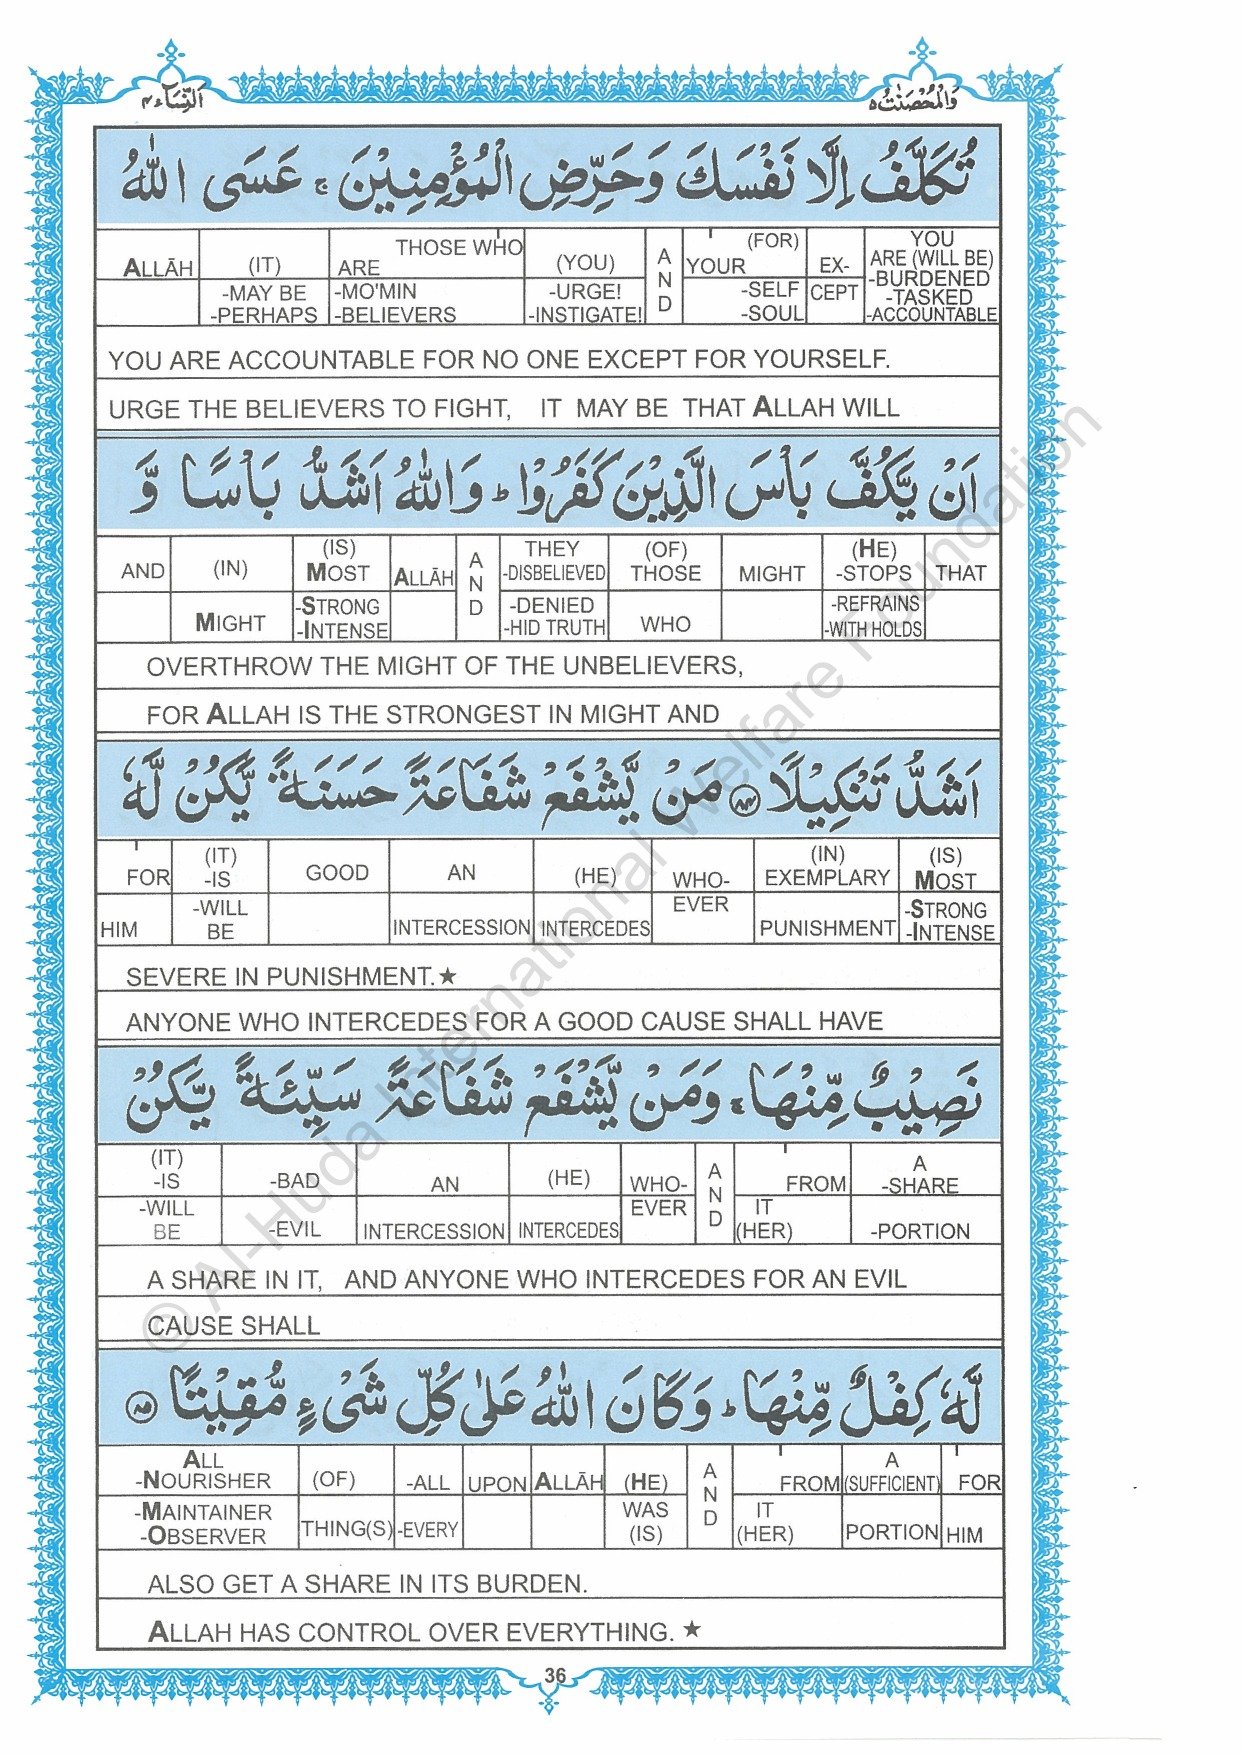 وَالْمُحْصَنٰتُ ۵
اَلنِّسَآء ۴
تُكَلَّفُ اِلَّا نَفْسَكَ وَحَرِّضِ الْمُؤْمِنِيْنَ ۚ عَسَى اللّٰهُ
ALLĀH (IT) THOSE WHO ARE (YOU) AND (FOR) YOUR EX- YOU ARE (WILL BE)
-MAY BE -PERHAPS -MO'MIN -BELIEVERS -URGE! -INSTIGATE! -SELF -SOUL CEPT -BURDENED -TASKED -ACCOUNTABLE
YOU ARE ACCOUNTABLE FOR NO ONE EXCEPT FOR YOURSELF.
URGE THE BELIEVERS TO FIGHT, IT MAY BE THAT ALLAH WILL
اَنْ يَّكُفَّ بَاْسَ الَّذِيْنَ كَفَرُوْا ؕ وَاللّٰهُ اَشَدُّ بَاْسًا وَّ
AND (IN) (IS) MOST ALLĀH AND THEY -DISBELIEVED (OF) THOSE MIGHT (HE) -STOPS THAT
MIGHT -STRONG -INTENSE -DENIED -HID TRUTH WHO -REFRAINS -WITH HOLDS
OVERTHROW THE MIGHT OF THE UNBELIEVERS,
FOR ALLAH IS THE STRONGEST IN MIGHT AND
اَشَدُّ تَنْكِيْلًا ۸۴ مَنْ يَّشْفَعْ شَفَاعَةً حَسَنَةً يَّكُنْ لَّهٗ
FOR (IT) -IS GOOD AN (HE) WHO- (IN) EXEMPLARY (IS) MOST
HIM -WILL BE INTERCESSION INTERCEDES EVER PUNISHMENT -STRONG -INTENSE
SEVERE IN PUNISHMENT.★
ANYONE WHO INTERCEDES FOR A GOOD CAUSE SHALL HAVE
نَصِيْبٌ مِّنْهَا ۚ وَمَنْ يَّشْفَعْ شَفَاعَةً سَيِّئَةً يَّكُنْ
(IT) -IS -BAD AN (HE) WHO- AND FROM A -SHARE
-WILL BE -EVIL INTERCESSION INTERCEDES EVER IT (HER) -PORTION
A SHARE IN IT, AND ANYONE WHO INTERCEDES FOR AN EVIL
CAUSE SHALL
لَّهٗ كِفْلٌ مِّنْهَا ؕ وَكَانَ اللّٰهُ عَلٰى كُلِّ شَىْءٍ مُّقِيْتًا ۸۵
ALL -NOURISHER (OF) -ALL UPON ALLĀH (HE) AND FROM A (SUFFICIENT) FOR
-MAINTAINER -OBSERVER THING(S) -EVERY WAS (IS) IT (HER) PORTION HIM
ALSO GET A SHARE IN ITS BURDEN.
ALLAH HAS CONTROL OVER EVERYTHING. ★
36
© Al-Huda International Welfare Foundation